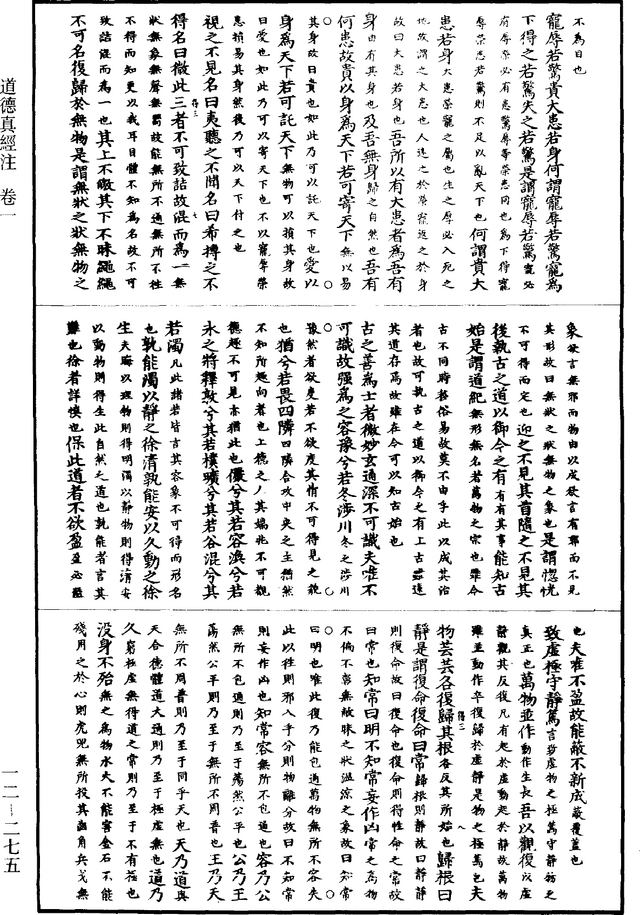 不為目也
寵辱若驚貴大患若身何謂寵辱若驚寵為
下得之若驚失之若驚是謂寵辱若驚寵必
有辱榮必有患驚辱等榮患同也為下得寵
辱榮患若驚則不足以亂天下也何謂貴大
患若身大患榮寵之屬也生之厚必入死之
地故謂之大患也人迷之於榮寵返之於身
故曰大患若身也吾所以有大患者為吾有
身由有其身也及吾無身歸之自然也吾有
何患故貴以身為天下若可寄天下無以易
其身故曰貴也如此乃可以託天下也愛以
身為天下若可託天下無物可以損其身故
曰愛也如此乃可以寄天下也不以寵辱榮
患損易其身然後乃可以天下付之也
視之不見名曰夷聽之不聞名曰希搏之不
得名曰微此三者不可致詰故混而為一無
狀無象無聲無響故能無所不通無所不往
不得而知更以我耳目體不知為名故不可
致詰混而為一也其上不皦其下不昧繩繩
不可名復歸於無物是謂無狀之狀無物之
象欲言無邪而物由以成欲言有邪而不見
其形故曰無狀之狀無物之象也是謂惚恍
不可得而定也迎之不見其首隨之不見其
後執古之道以御今之有有有其事能知古
始是謂道紀無形無名者萬物之宗也雖今
古不同時移俗易故莫不由乎此以成其治
者也故可執古之道以御今之有上古雖遠
其道存焉故雖在今可以知古始也
古之善為士者微妙玄通深不可識夫唯不
可識故強為之容豫兮若冬涉川冬之涉川
豫然者欲度若不欲度其情不可得見之貌
也猶兮若畏四隣四隣合攻中央之主猶然
不知所趣向者也上德之人其端兆不可覩
德趣不可見亦猶此也儼兮其若容渙兮若
冰之將釋敦兮其若樸曠兮其若谷混兮其
若濁凡此諸若皆言其容象不可得而形名
也孰能濁以靜之徐清孰能安以久動之徐
生夫晦以理物則得明濁以靜物則得清安
以動物則得生此自然之道也孰能者言其
難也徐者詳慎也保此道者不欲盈盈必溢
也夫唯不盈故能蔽不新成蔽覆蓋也
致虛極守靜篤言致虛物之極篤守靜物之
真正也萬物並作動作生長吾以觀復以虛
靜觀其反復凡有起於虛動起於靜故萬物
雖並動作卒復歸於虛靜是物之極篤也夫
物芸芸各復歸其根各反其所始也歸根曰
靜是謂復命復命曰常歸根則靜故曰靜靜
則復命故曰復命也復命則得性命之常故
曰常也知常曰明不知常妄作凶常之為物
不偏不彰無皦昧之狀溫涼之象故曰知常
曰明也唯此復乃能包通萬物無所不容失
此以往則邪入乎分則物離分故曰不知常
則妄作凶也知常容無所不包通也容乃公
無所不包通則乃至于蕩然公平也公乃王
蕩然公平則乃至于無所不周普也王乃天
無所不周普則乃至于同乎天也天乃道與
天合德體道大通則乃至于極虛無也道乃
久窮極虛無得道之常則乃至于不有極也
沒身不殆無之為物水火不能害金石不能
殘用之於心則虎兕無所投其齒角兵戈無
道德真經注 卷一
一二—二七五